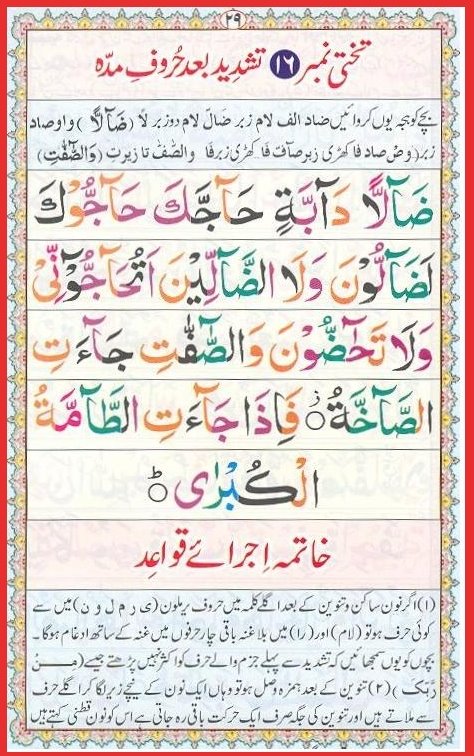 ۲۹
تختی نمبر ۱۶ تشدید بعد حُروفِ مدّہ
بچے کو ہجہ یوں کروائیں ضاد الف لام زبر ضَالَ لام دو زبر لًا (ضَآلًّا) واؤ صاد
زبر (وَصّ صاد فا کھڑی زبر صآفّ فا کھڑی زبر فا وَالصّٰفّٰ تا زیر تِ (وَالصّٰٓفّٰتِ)
ضَآلًّا دَآبَّةٍ حَآجَّكَ حَآجُّوْكَ
لَضَآلُّوْنَ وَلَا الضَّآلِّيْنَ اَتُحَآجُّوْٓنِّيْ
وَلَا تَحٰٓضُّوْنَ وَالصّٰٓفّٰتِ جَآءَتِ
الصَّآخَّةُ ۞ فَاِذَا جَآءَتِ الطَّآمَّةُ
الْكُبْرٰى ۞ ط
خاتمہ اِجرائے قواعِد
(۱) اگر نون ساکن و تنوین کے بعد اگلے کلمہ میں حروف یرملون (ی ر م ل و ن) میں سے
کوئی حرف ہو تو (لام) اور (را) میں بلا غنہ باقی چار حرفوں میں غنہ کے ساتھ ادغام ہوگا۔
بچوں کو یوں سمجھائیں کہ تشدید سے پہلے جزم والے حرف کو اکثر نہیں پڑھتے جیسے (مِنْ
رَّبِّكَ) (۲) تنوین کے بعد ہمزہ وصل ہو تو وہاں ایک نون کے نیچے زیر لگا کر اگلے حرف
سے ملاتے ہیں اور تنوین کی جگہ صرف ایک حرکت باقی رہ جاتی ہے اس کو نون قطنی کہتے ہیں